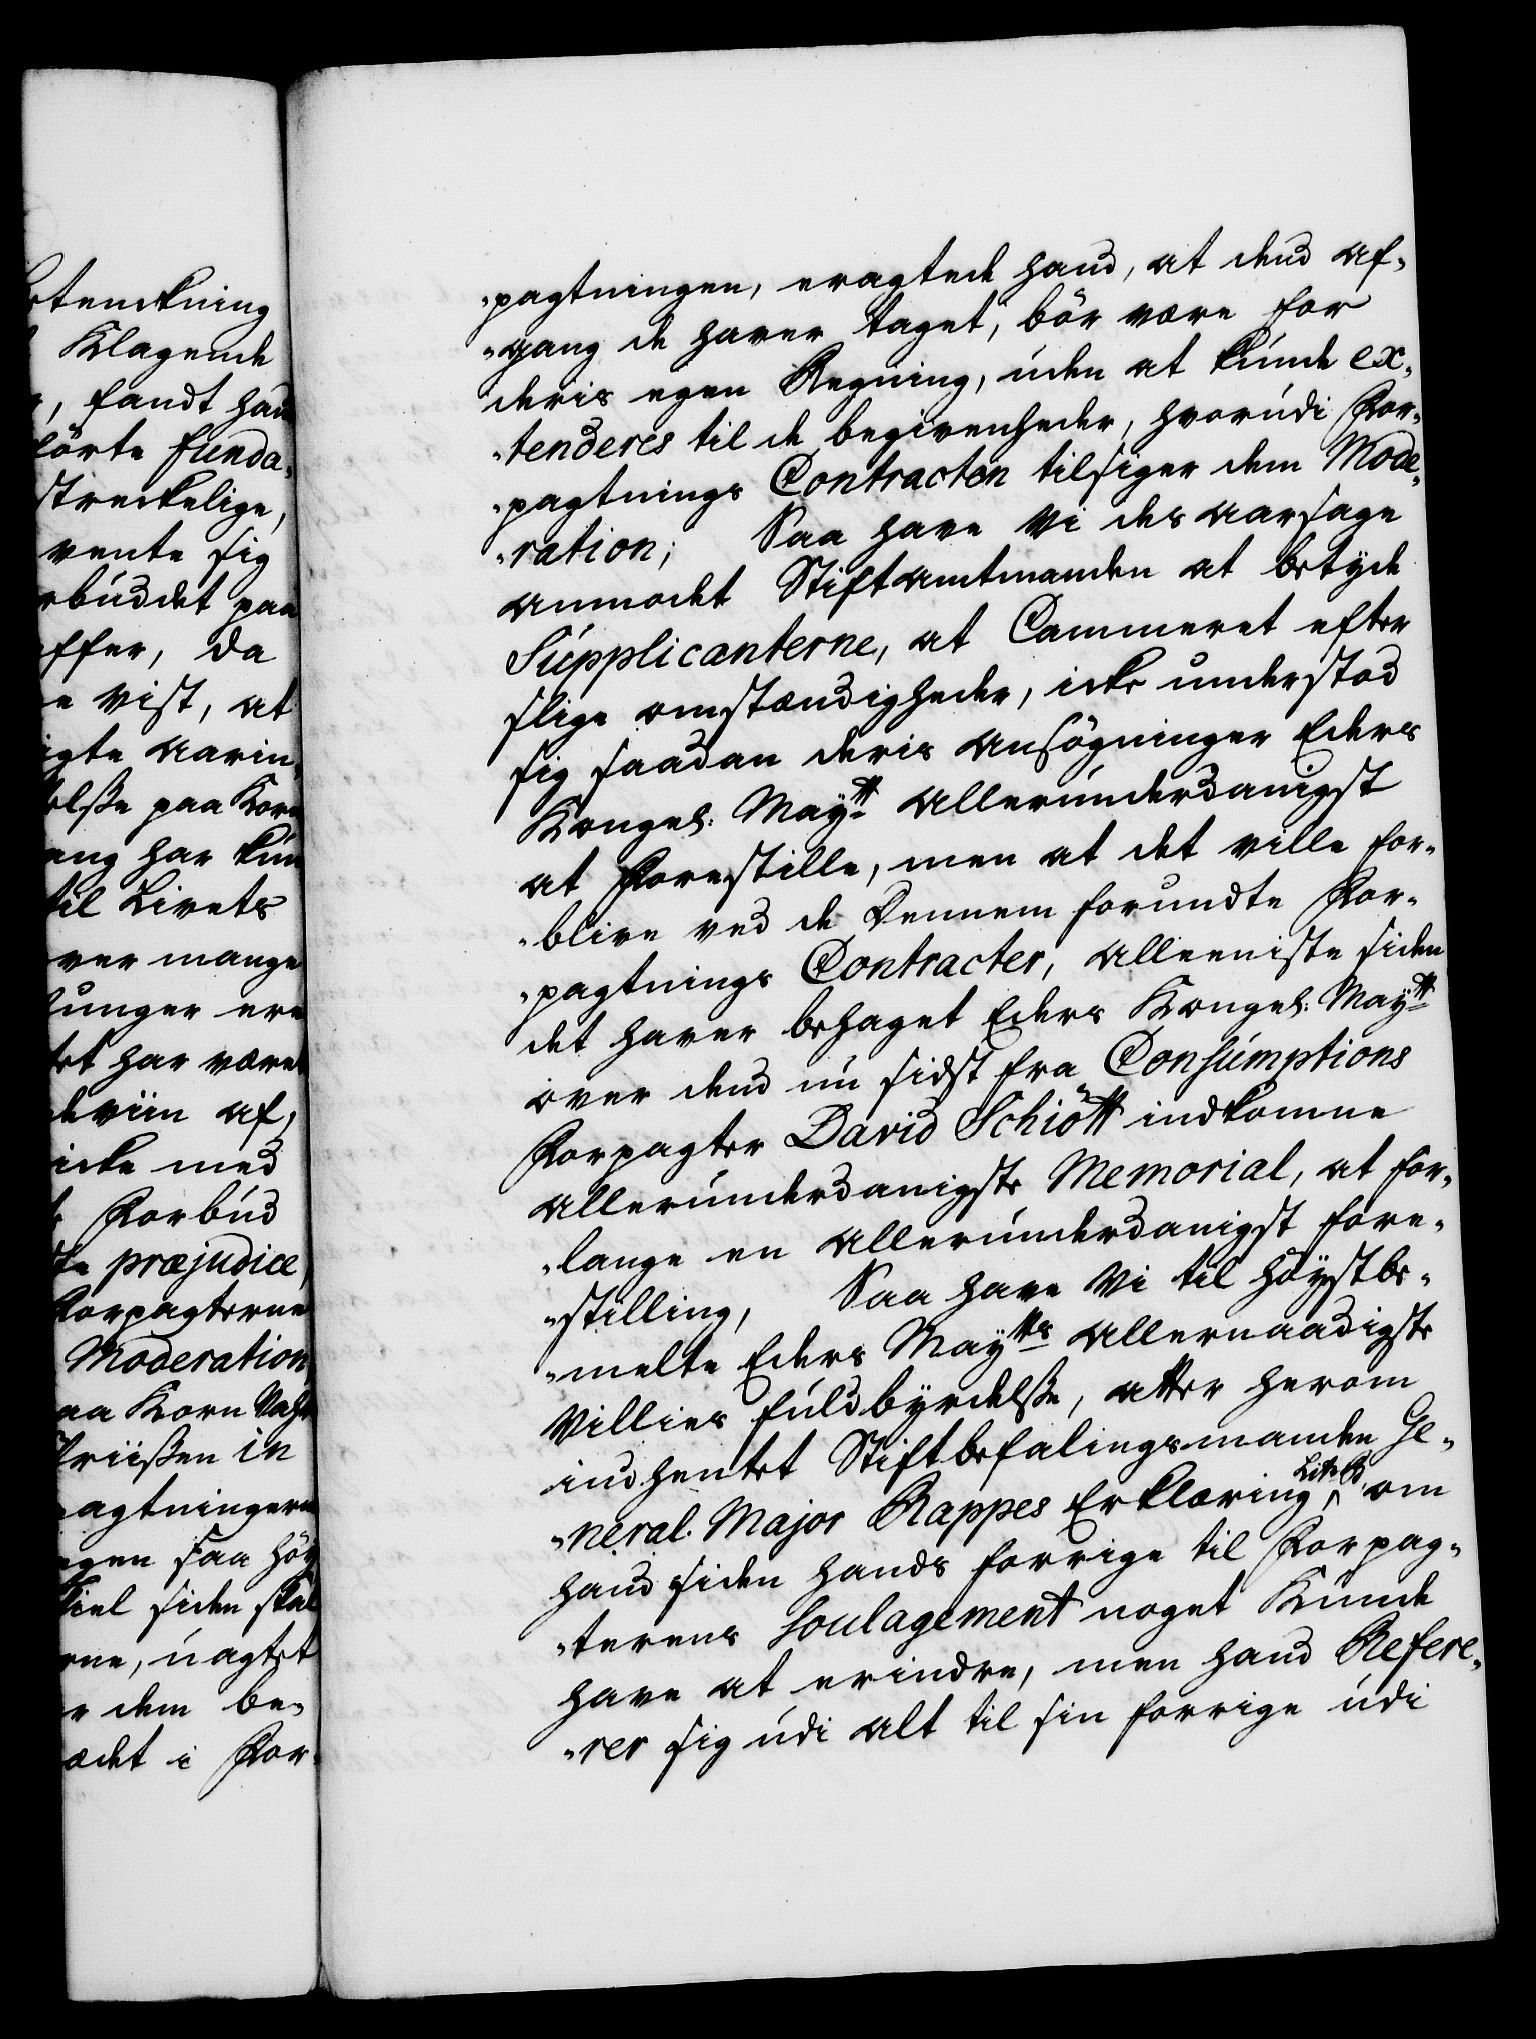 etenckning
Klagende
, fandt hand
förte funda,
streckelige,
vente sig
rbuddet paa
ffer, da
e vist, at
igte aarin,
else paa Korn
ang har kun
til Livets
ver mange
unger ere
et har være
leviin af,
icke med
Forbud
te præjudice,
Forpagterne
Moderation,
aa Korn Vahr
riißen in
agtningern
gen saa höy
iel siden skal
rne, uagtet
r dem be,
ædet i For,
„pagtningen, eragtede hand, at dend af,
„gang de haver taget, bör være for
deris egen Regning, uden at kunde ex,
„tenderes til de begivenheder, hvorudi For,
„pagtnings Contracten tilsiger dem Mode,
„ration; Saa have Vi des aarsage
anmodet Stiftamtmanden at betyde
Supplicanterne, at Cammeret efter
slige omstændigheder, icke understod
sig saadan deris ansögninger Eders
Kongel: Maytt allerunderdanigst
at Forestille, men at det ville for,
„blive ved de Dennem forundte For,
„pagtnings Contracter, alleeniste siden
det haver behaget Eders Kongel: Maytt
over dend nu sidst fra Consumptions
Forpagter David Schiött indkomne
allerunderdanigste Memorial, at for,
„lange en allerunderdanigst fore,
„stilling, Saa have Vi til höystbe,
„melte Eders Maytts allernaadigste
Villies fuldbyrdelse, atter herom
indhentet Stiftbefalingsmanden Ge,
„neral Major Rappes Erklæring, Lit: B om
hand siden hands forrige til Forpag,
„terens Soulagement noget kunde
have at erindre, men hand Refere,
„rer sig udi alt til sin forrige udi